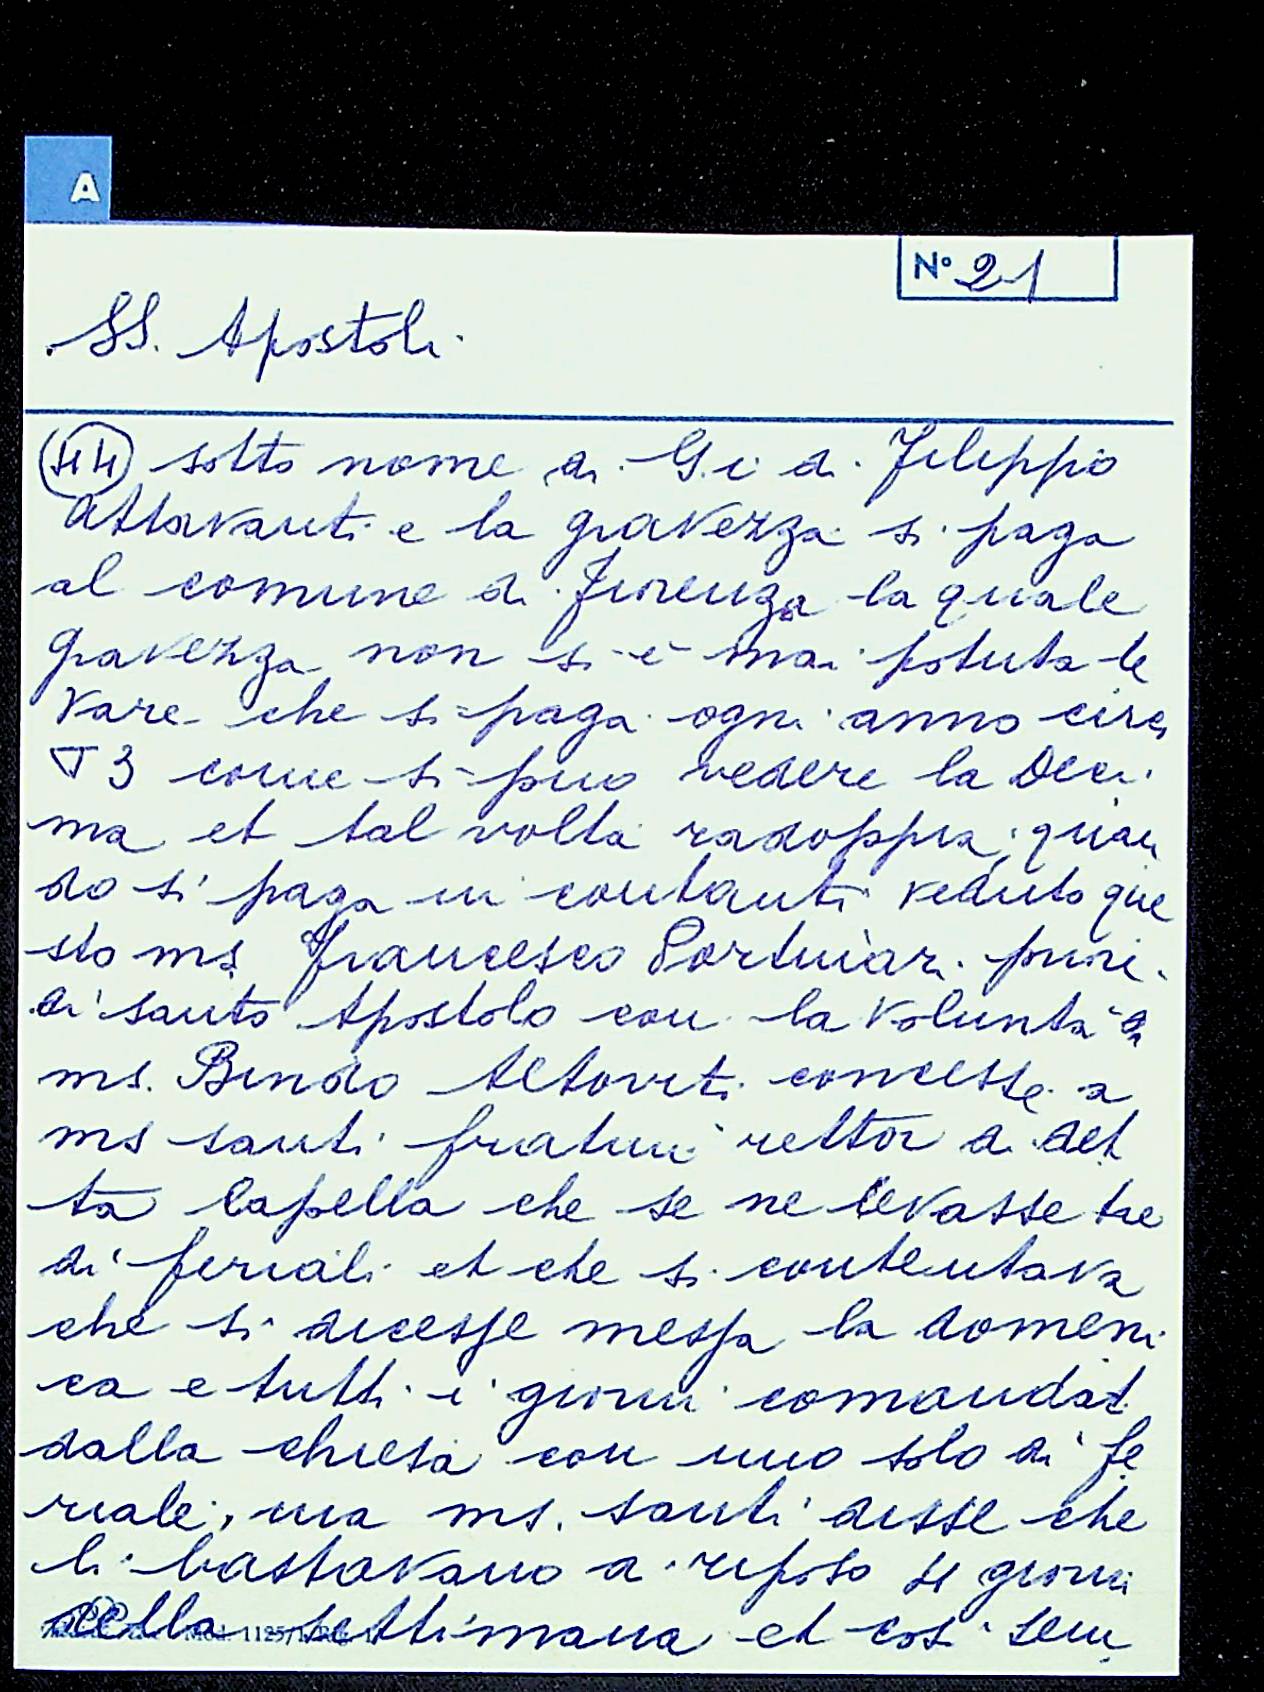 A
N° 21
SS. Apostoli
44 sotto nome di G. i di Filippo
Attavanti e la gravezza si paga
al comune di Firenza la quale
gravezza non si è mai potuta le
vare che si paga ogni anno circa
3 come si può vedere la Deci
ma et tal volta radoppia, quan
do si paga in contanti veduto que
sto ms Francesco Portinari priri
di santo Apostolo con la volunta di
ms. Bindo Altoviti concesse a
ms santi fratini rettor di det
ta Capella che se ne levasse tre
di feriali et che si contentava
che si dicesse messa la domeni
ca e tutti i giorni comandat
dalla chiesa con uno solo di fe
riale, ma ms. santi disse che
li bastavano a riposo 4 giorni
della settimana et così sem
Mod. 1125/1